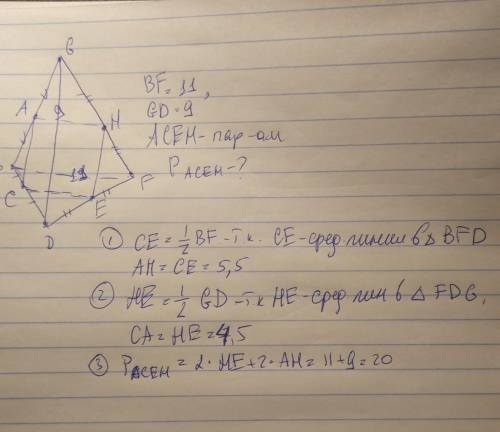 G
BF = 11,
GD = 9
A
9
H
ACEH - пар-ам
11
F
PACEH - ?
C
E
D
① CE = 1/2 BF - т.к. CE - сред линия в △ BFD
AH = CE = 5,5
② HE = 1/2 GD - т.к HE - сред лин в △ FDG,
CA = HE = 4,5
③ PACEH = 2 · HE + 2 · AH = 11 + 9 = 20